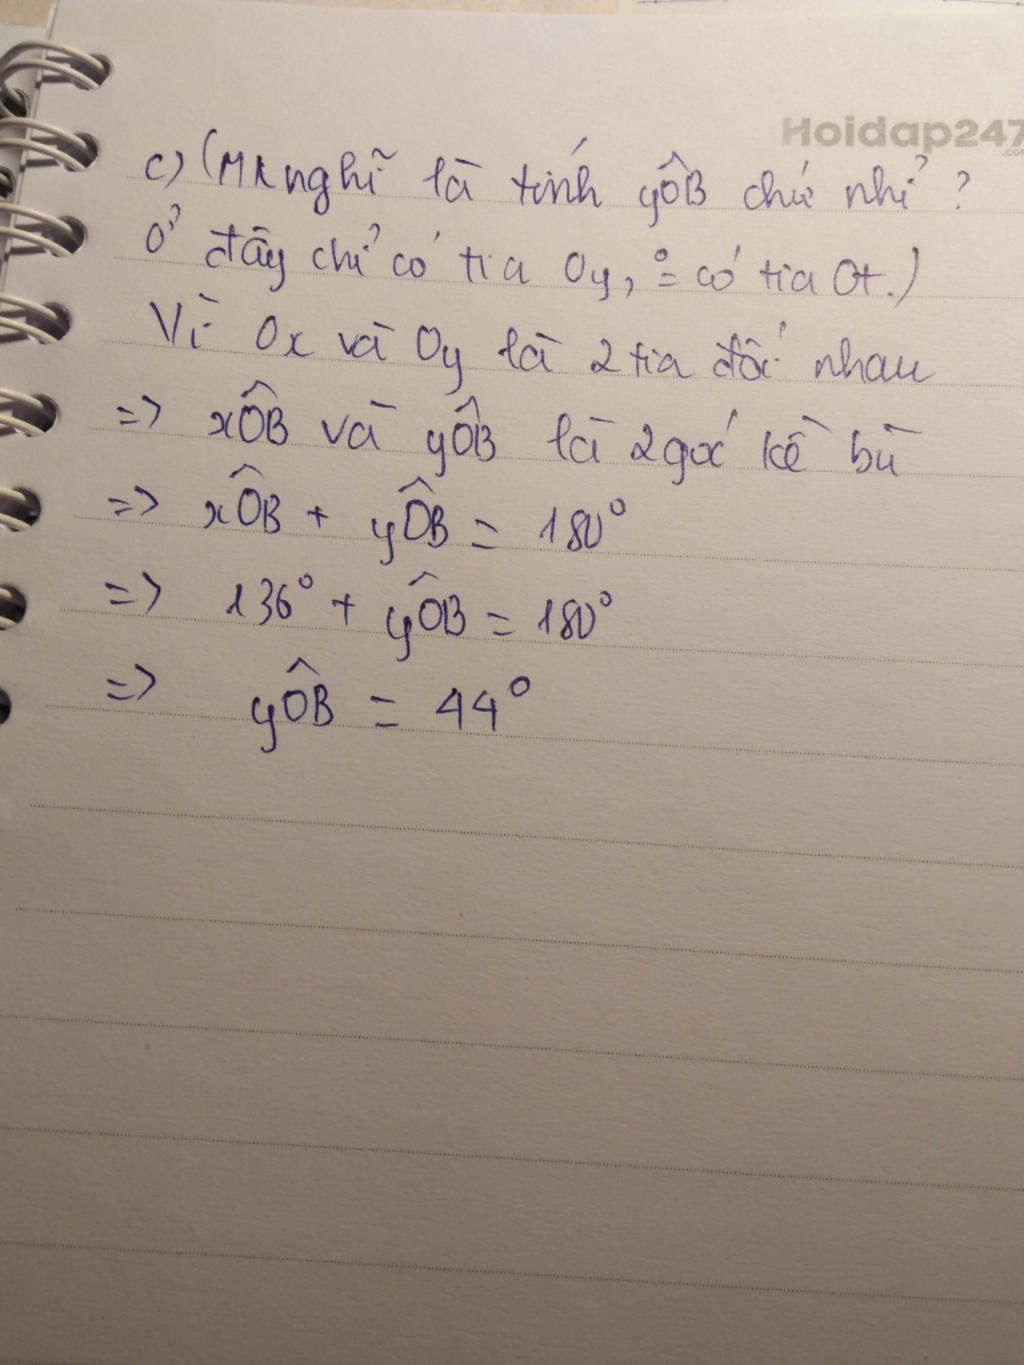 Hoidap247
.com
c) (Mk nghĩ là tính yÔB chứ nhỉ?
Ở đây chỉ có tia Oy, có tia Ot.)
Vì Ox và Oy là 2 tia đối nhau
=> xÔB và yÔB là 2 góc kề bù
=> xÔB + yÔB = 180°
=> 136° + yÔB = 180°
=> yÔB = 44°